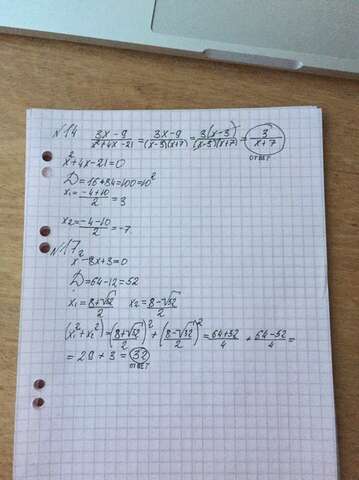 N14 (3x - 9)/(x² + 4x - 21) = (3x - 9)/((x-3)(x+7)) = 3(x-3)/((x-3)(x+7)) = 3/(x+7)
ОТВЕТ
x² + 4x - 21 = 0
D = 16 + 84 = 100 = 10²
x₁ = (-4+10)/2 = 3
x₂ = (-4-10)/2 = -7
N17
x² - 8x + 3 = 0
D = 64 - 12 = 52
x₁ = (8+√52)/2 x₂ = (8-√52)/2
(x₁² + x₂²) = ((8+√52)/2)² + ((8-√52)/2)² = (64+52)/4 + (64-52)/4 =
= 29 + 3 = 32
ОТВЕТ